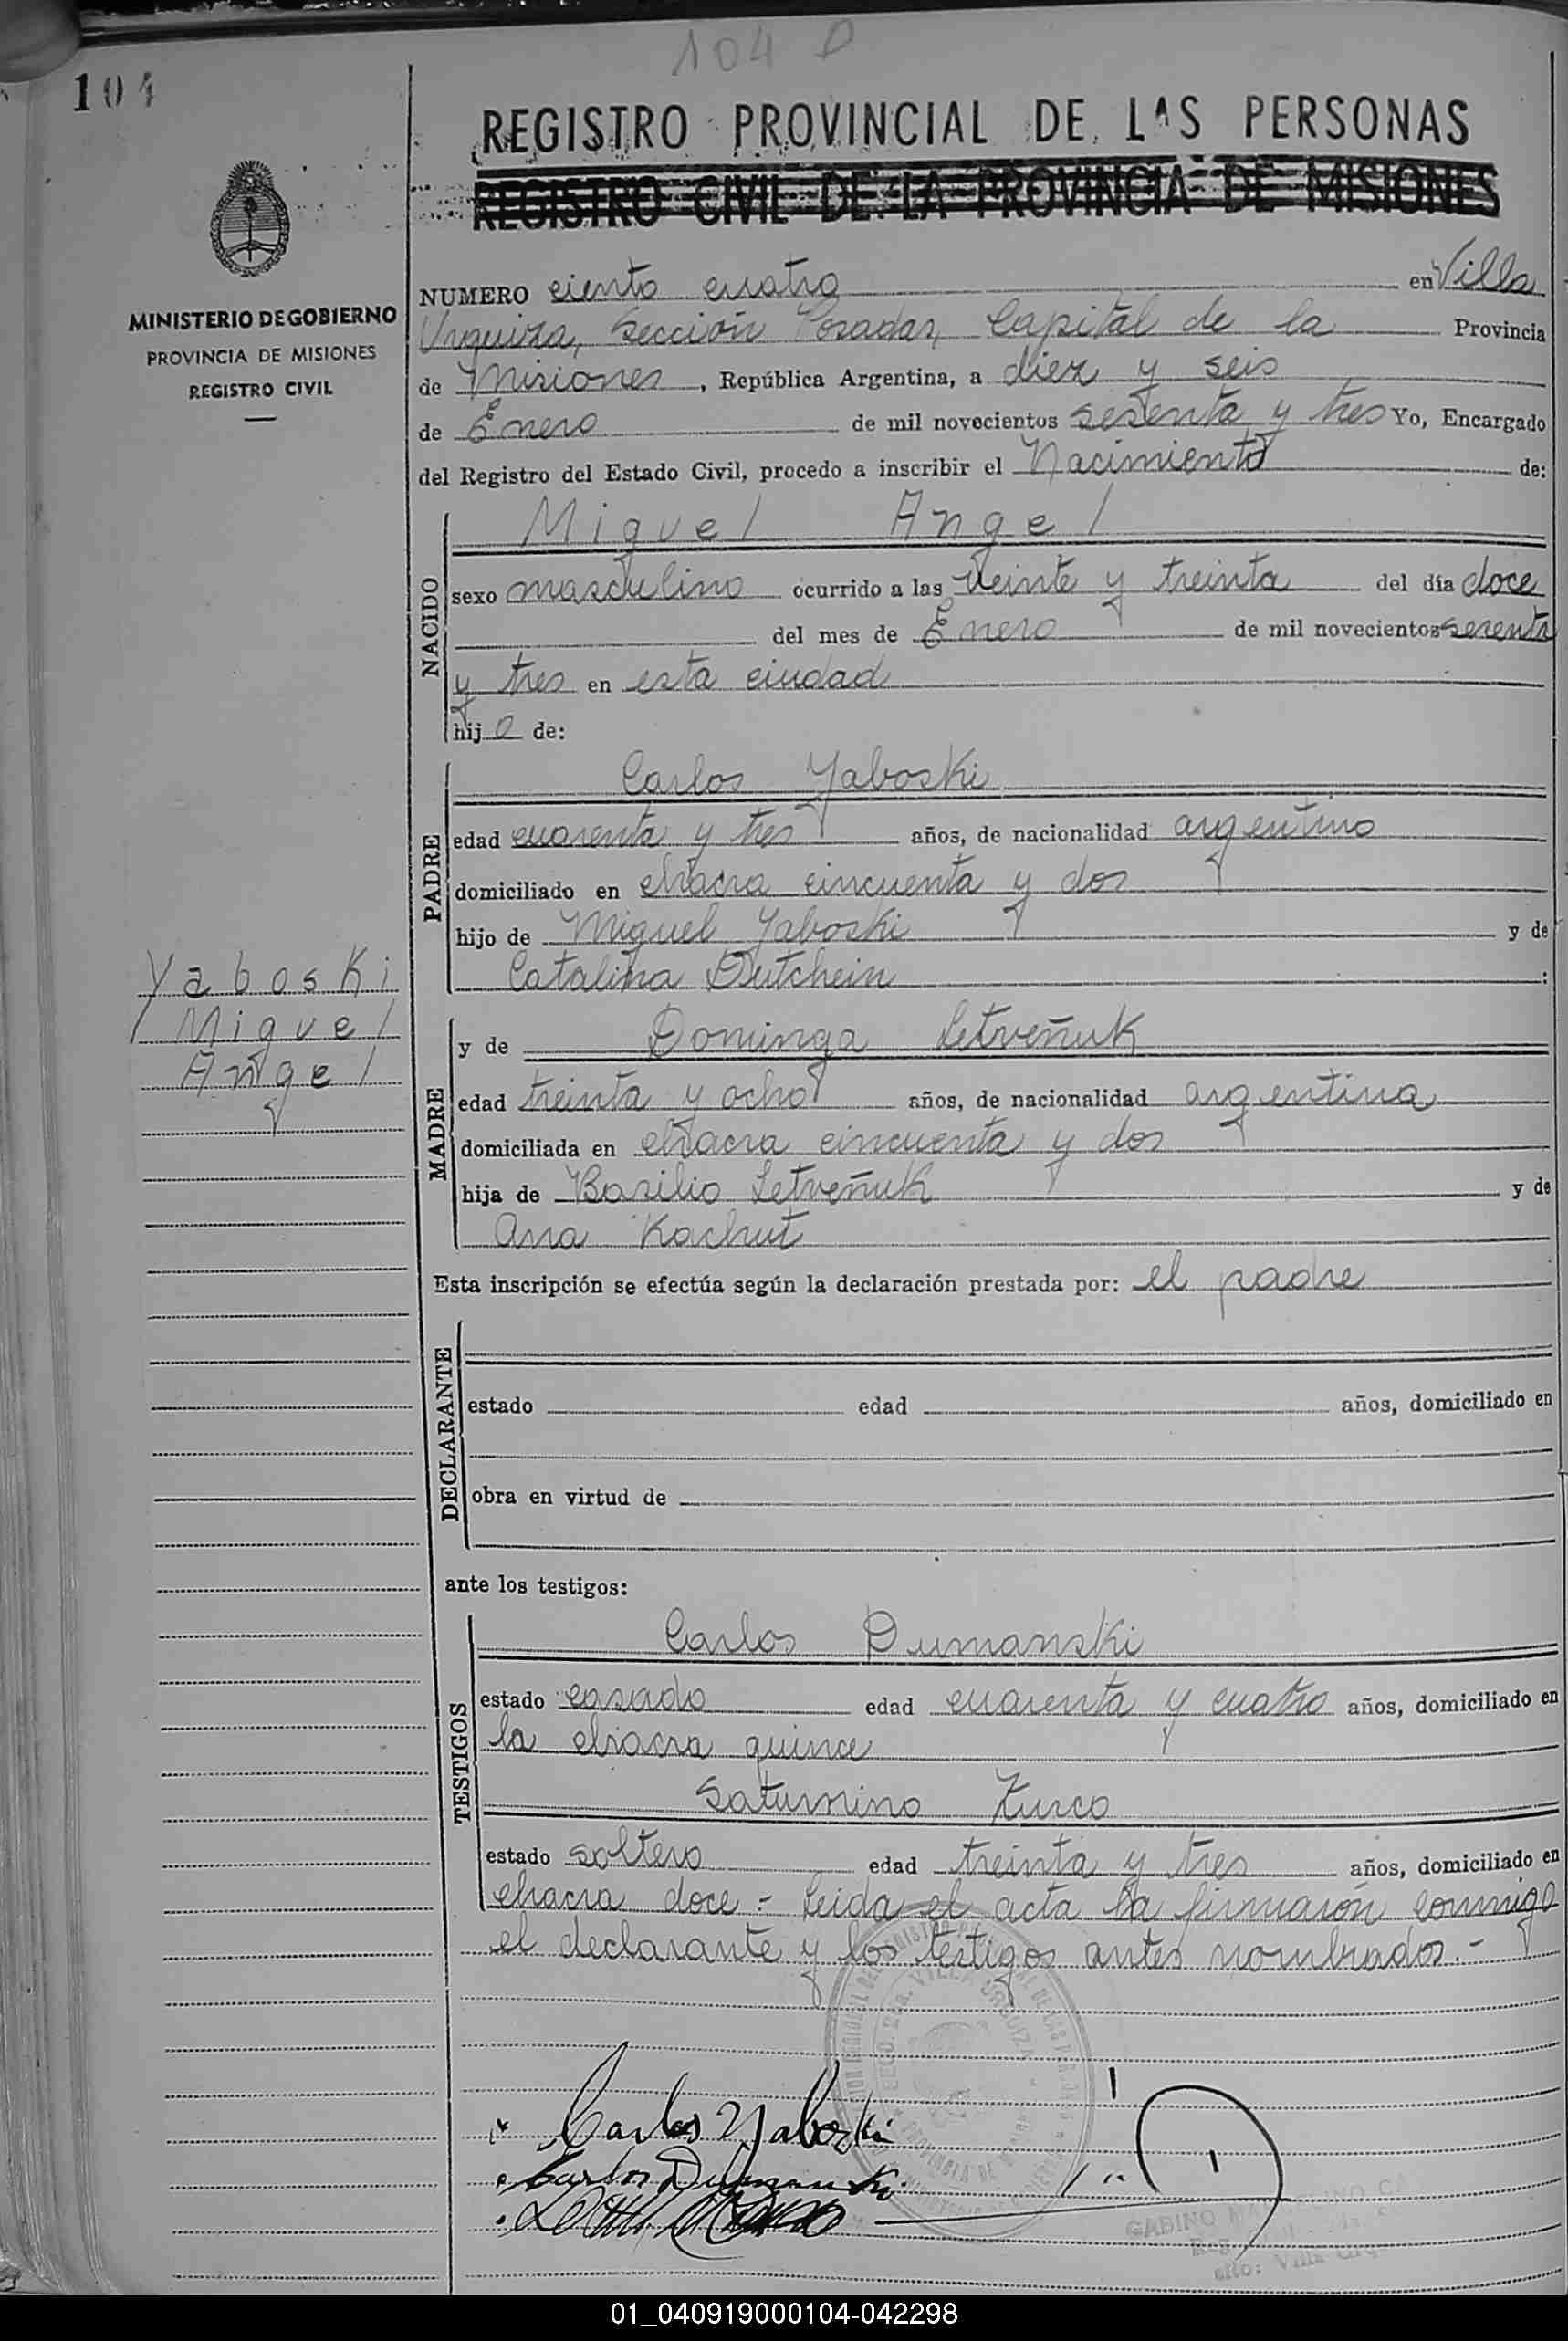 104 D
104
REGISTRO PROVINCIAL DE LAS PERSONAS
REGISTRO CIVIL DE LA PROVINCIA DE MISIONES
MINISTERIO DE GOBIERNO
PROVINCIA DE MISIONES
REGISTRO CIVIL
NUMERO ciento cuatro en Villa
Urquiza, Sección Posadas, Capital de la Provincia
de Misiones, República Argentina, a diez y seis
de Enero de mil novecientos sesenta y tres Yo, Encargado
del Registro del Estado Civil, procedo a inscribir el Nacimiento de:
NACIDO
Miguel Angel
sexo masculino ocurrido a las veinte y treinta del día doce
del mes de Enero de mil novecientos sesenta
y tres en esta ciudad
hijo de:
PADRE
Carlos Yaboski
edad cuarenta y tres años, de nacionalidad argentino
domiciliado en chacra cincuenta y dos
hijo de Miguel Yaboski y de
Catalina Dutchein :
Yaboski
Miguel
Angel
MADRE
y de Dominga Letveñuk
edad treinta y ocho años, de nacionalidad argentina
domiciliada en chacra cincuenta y dos
hija de Basilio Letveñuk y de
Ana Kachut
Esta inscripción se efectúa según la declaración prestada por: el padre
DECLARANTE
estado edad años, domiciliado en
obra en virtud de
ante los testigos:
TESTIGOS
Carlos Dumanski
estado casado edad cuarenta y cuatro años, domiciliado en
la chacra quince
Saturnino Zurco
estado soltero edad treinta y tres años, domiciliado en
chacra doce.- Leida el acta la firmarón conmigo
el declarante y los testigos antes nombrados.-
Carlos Yaboski
Carlos Dumanski
GABINO
01_040919000104-042298